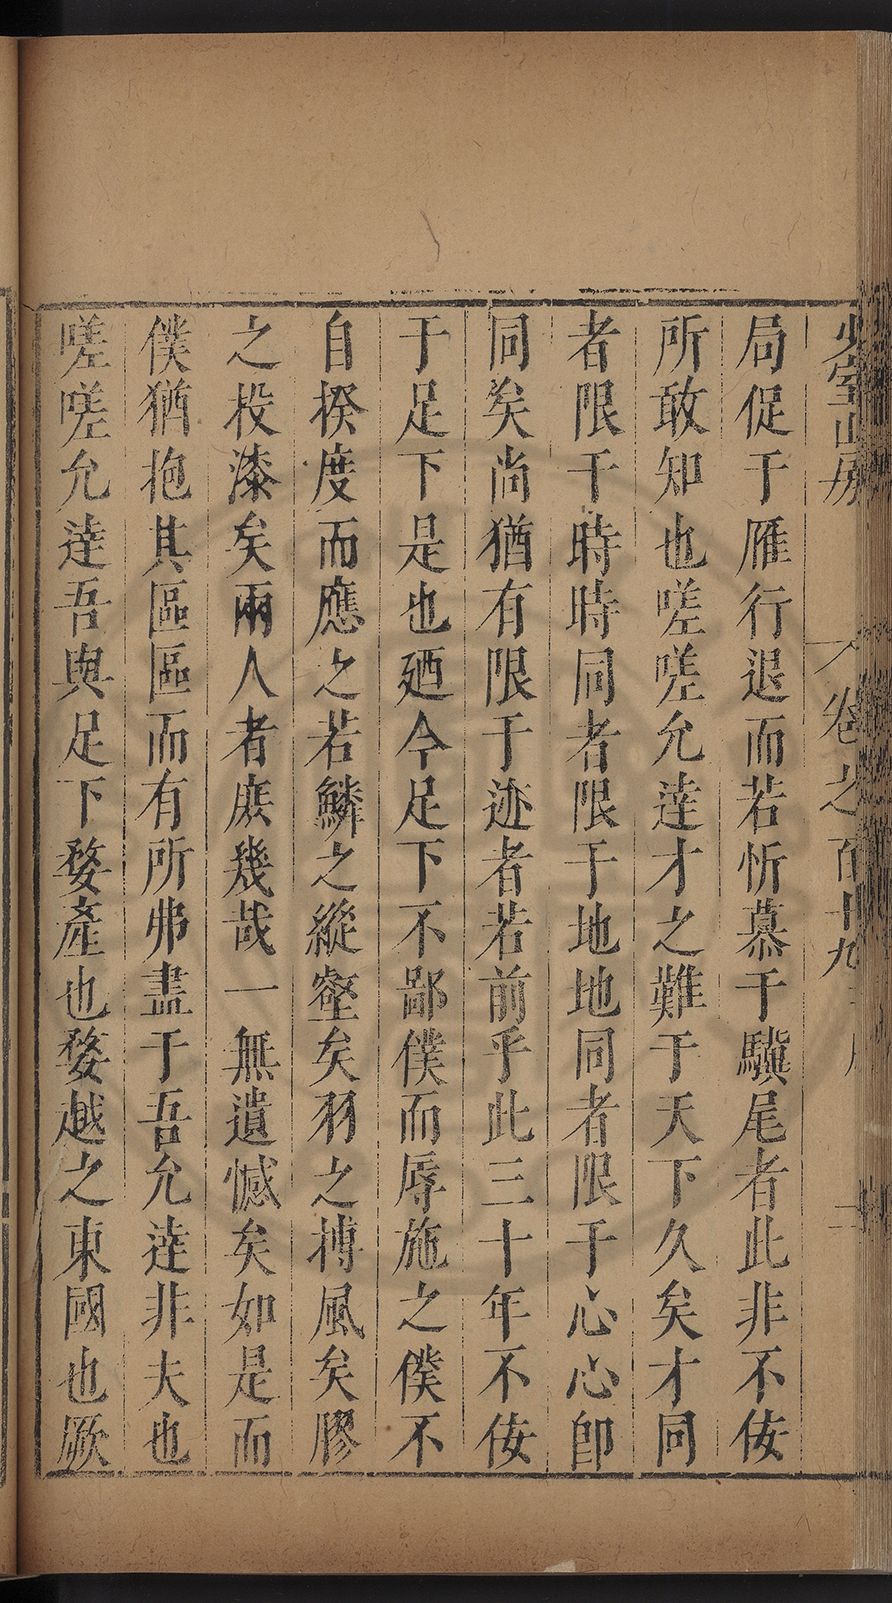 少室山房 卷之百十九
局促于雁行退而若忻慕于驥尾者此非不佞
所敢知也嗟嗟允達才之難于天下久矣才同
者限于時時同者限于地地同者限于心心卽
同矣尚猶有限于迹者若前乎此三十年不佞
于足下是也廼今足下不鄙僕而辱施之僕不
自揆度而應之若鱗之縱壑矣羽之搏風矣膠
之投漆矣兩人者庶幾哉一無遺憾矣如是而
僕猶抱其區區而有所弗盡于吾允達非夫也
嗟嗟允達吾與足下婺產也婺越之東國也厥